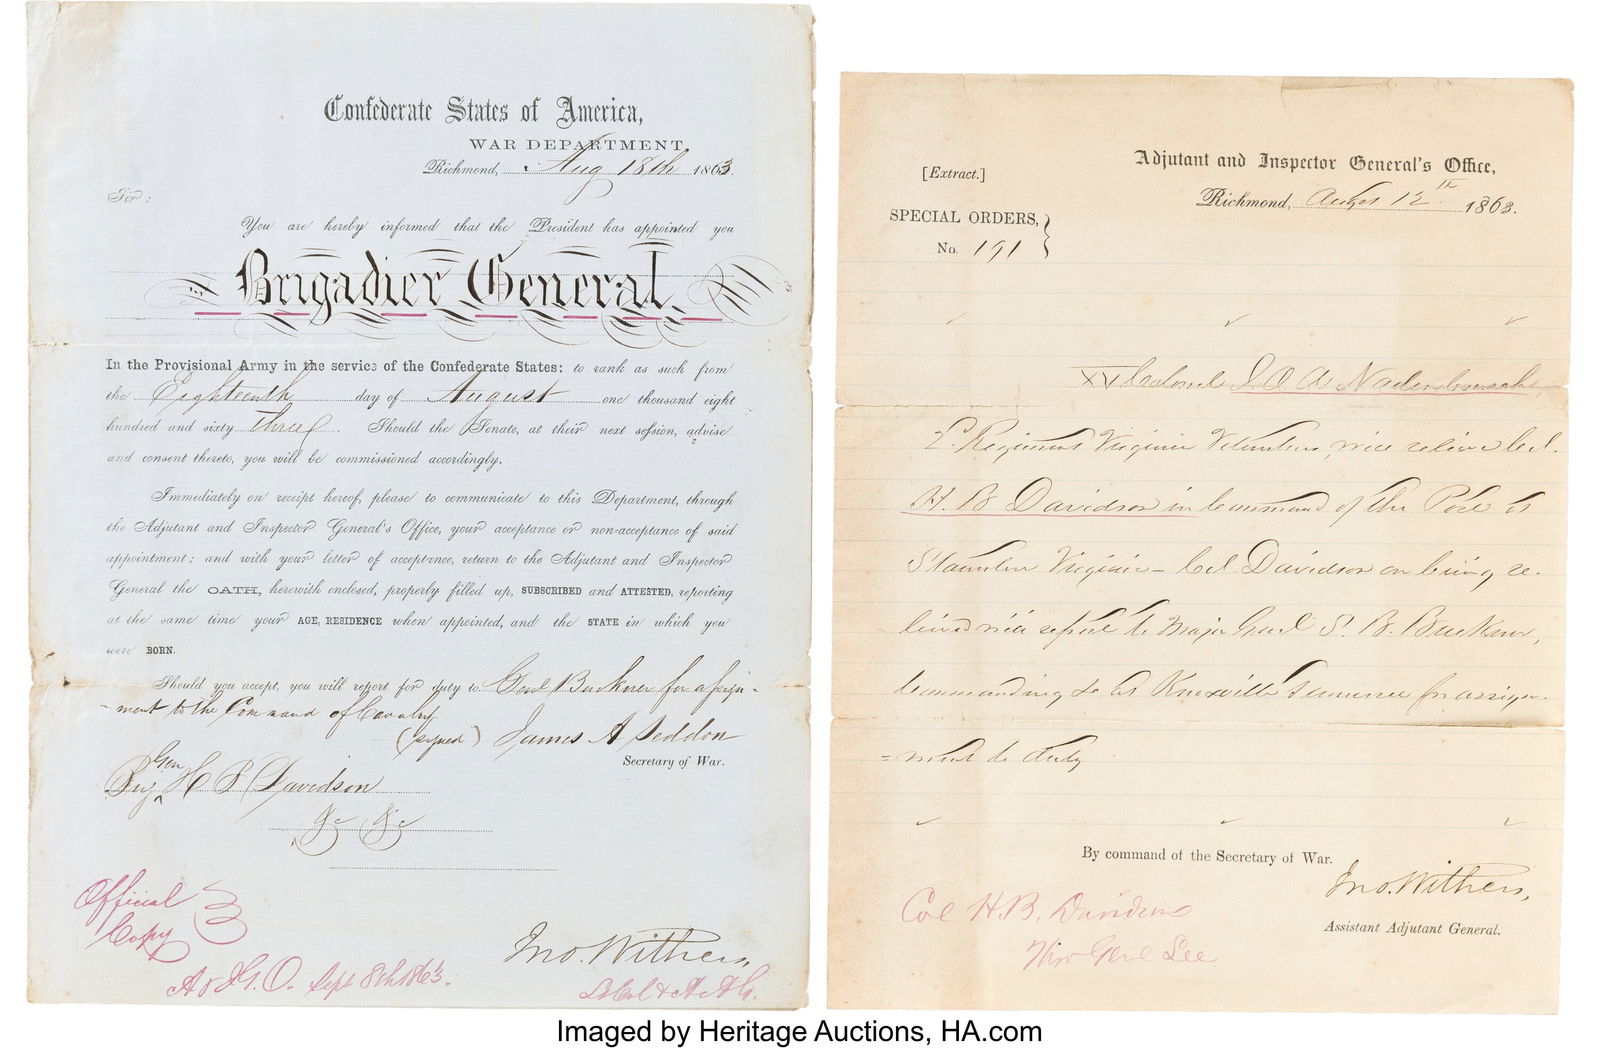 Confederate States of America,
WAR DEPARTMENT,
Richmond, Aug 18th 1863.
Sir:
You are hereby informed that the President has appointed you
Brigadier General
In the Provisional Army in the service of the Confederate States: to rank as such from
the Eighteenth day of August one thousand eight
hundred and sixty three. Should the Senate, at their next session, advise
and consent thereto, you will be commissioned accordingly.
Immediately on receipt hereof, please to communicate to this Department, through
the Adjutant and Inspector General's Office, your acceptance or non-acceptance of said
appointment; and with your letter of acceptance, return to the Adjutant and Inspector
General the OATH, herewith enclosed, properly filled up, SUBSCRIBED and ATTESTED, reporting
at the same time your AGE, RESIDENCE when appointed, and the STATE in which you
were BORN.
Should you accept, you will report for duty to Genl Buckner for assign-
-ment to the Command of Cavalry
(signed) James A Seddon
Secretary of War.
Gen
Brig ^ H B Davidson
&c &c
Official
Copy
A & I G. O. Sept 8th 1863.
Jno. Withers
Lt Col & A A G.
[Extract.]
Adjutant and Inspector General's Office,
Richmond, Augst 12th 1863.
SPECIAL ORDERS,
No. 191
XV Colonel J Q A Nadenbousch
2 Regiment Virginia Volunteers, will relieve Col.
H. B Davidson in Command of the Post at
Staunton Virginia - Col. Davidson on being re-
lieved will report to Major Genl S. B. Buckner,
Commanding &c at Knoxville Tennessee for assign-
-ment to duty
By command of the Secretary of War.
Jno. Withers,
Assistant Adjutant General.
Col H. B. Davidson
Genl Lee
Imaged by Heritage Auctions, HA.com